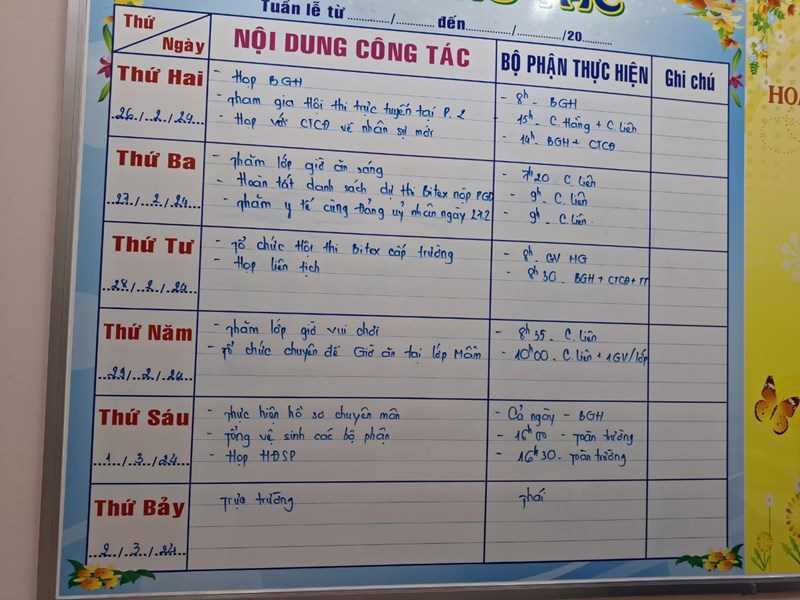 Tuần lễ từ ............/............/............ đến............/............/20.........
Thứ
Ngày
NỘI DUNG CÔNG TÁC
BỘ PHẬN THỰC HIỆN
Ghi chú
Thứ Hai
26./..2./.24
- Họp BGH
- Tham gia Hội thi trực tuyến tại P.2
- Họp với CTCĐ về nhân sự mới
- 8h - BGH
- 15h. C. Hằng + C. Liên
- 14h. BGH + CTCĐ
Thứ Ba
27./..2./.24
- Thăm lớp giờ ăn sáng
- Hoàn tất danh sách dự thi Bitex nộp PGD
- Thăm y tế cùng Đảng uỷ nhân ngày 27.2
- 7h20. C. Liên
- 9h. C. Liên
- 9h. C. Liên
Thứ Tư
28./..2./.24
- Tổ chức Hội thi Bitex cấp trường
- Họp liên tịch
- 8h. GV MG
- 8h30. BGH + CTCĐ + TT
Thứ Năm
29./..2./.24
- Thăm lớp giờ vui chơi
- Tổ chức chuyên đề Giờ ăn tại lớp Mầm
- 8h35. C. Liên
- 10h00. C. Liên + 1GV/lớp
Thứ Sáu
1./..3./.24
- Thực hiện hồ sơ chuyên môn
- Tổng vệ sinh các bộ phận
- Họp HĐSP
- Cả ngày - BGH
- 16h00 - Toàn trường
- 16h30. Toàn trường
Thứ Bảy
2./..3./.24
Trực trường
HOA